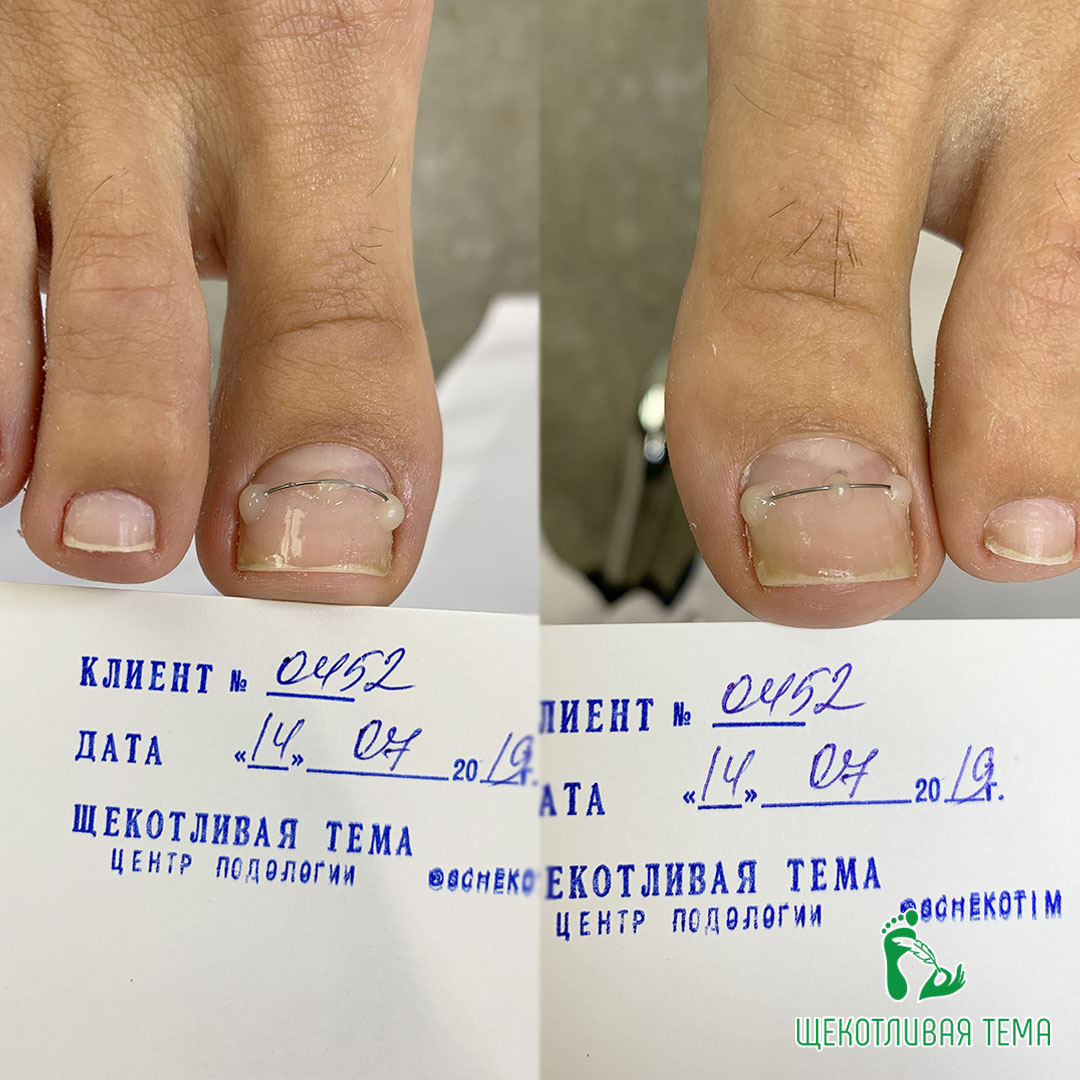 КЛИЕНТ № 0452
ДАТА «14» 07 2019г.
ЩЕКОТЛИВАЯ ТЕМА
ЦЕНТР ПОДОЛОГИИ @SCHEKO
ЛИЕНТ № 0452
АТА «14» 07 2019г.
ЕКОТЛИВАЯ ТЕМА
ЦЕНТР ПОДОЛОГИИ @SCHEKOTIM
ЩЕКОТЛИВАЯ ТЕМА